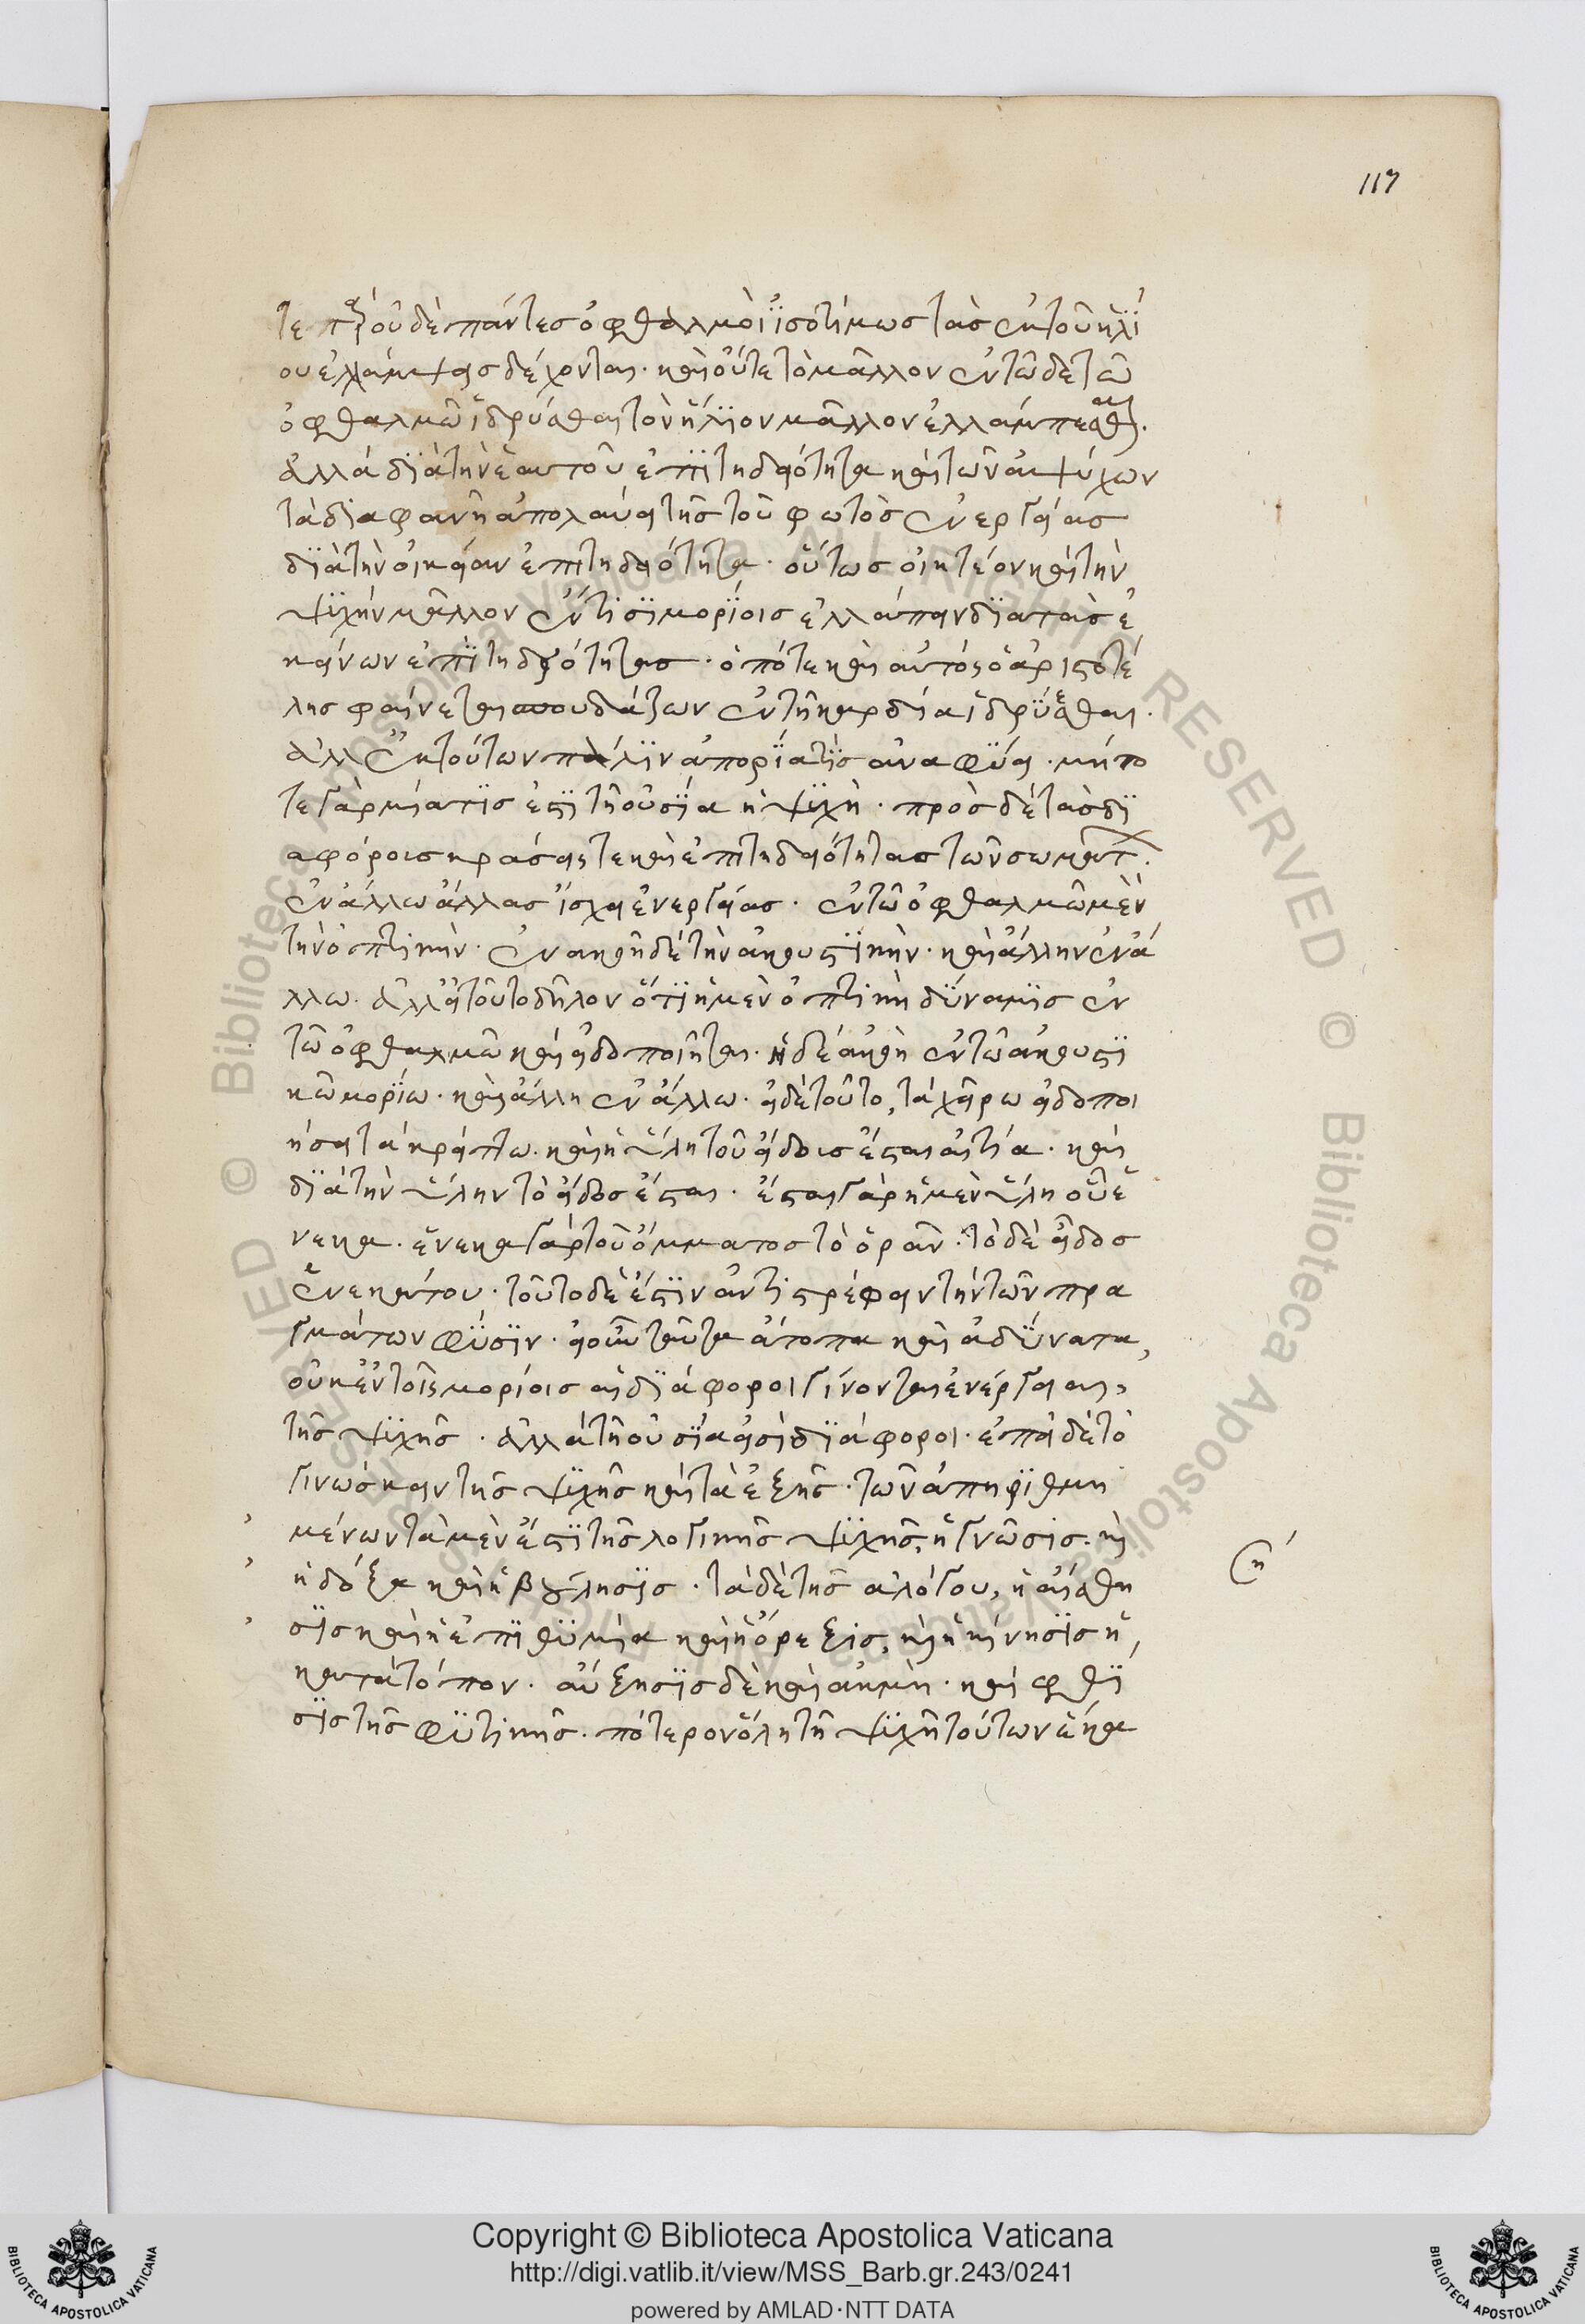 117
τε πῦρ οὐδὲ πάντες ὀφθαλμοὶ ἰσοτίμως τὰς ἐκ τοῦ ἡλί
ου ἐλλάμψεις δέχονται· καὶ οὔτε τὸ μᾶλλον ἐν τῶδε τῶ
ὀφθαλμῶ ἱδρύσθαι τὸν ἥλιον μᾶλλον ἐλλάμπεσθαι·
ἀλλὰ διὰ τὴν ἑαυτοῦ ἐπιτηδειότητα καὶ τῶν ἀψύχων
τὰ διαφανῆ ἀπολαύει τῆς τοῦ φωτὸς ἐνεργείας
διὰ τὴν οἰκείαν ἐπιτηδειότητα· οὕτως οἰητέον καὶ τὴν
ψυχὴν μᾶλλον ἔν τισι μορίοις ἐλλάμπειν διὰ τὰς ἐ
κείνων ἐπιτηδειότητας· ὁπότε καὶ αὐτὸς ὁ ἀριστοτέ
λης φαίνεται σπουδάζων ἐν τῆ καρδία ἱδρύεσθαι·
ἀλλ' ἐκ τούτων πάλιν ἀπορία τίς ἀναφύει· μήπο
τε γὰρ μία τις ἐστὶ τῆ οὐσία ἡ ψυχὴ· πρὸς δὲ τὰς δι
αφόροις κράσεις τε καὶ ἐπιτηδειότητας τῶν σωμάτων·
ἐν ἄλλω ἄλλας ἴσχει ἐνεργείας· ἐν τῶ ὀφθαλμῶ μὲν
τὴν ὀπτικὴν· ἐν ἀκοῆ δὲ τὴν ἀκουστικὴν· καὶ ἄλλην ἐν ἄ
λλω· ἀλλ' εἰ τοῦτο δῆλον ὅτι ἡ μὲν ὀπτικὴ δύναμις ἐν
τῶ ὀφθαλμῶ καὶ εἰδοποιῆται· ἡ δὲ ἀκοὴ ἐν τῶ ἀκουστι
κῶ μορίω· καὶ ἄλλη ἐν ἄλλω· εἰ δὲ τοῦτο, τὰ χείρω εἰδοποι
ήσει τὰ κρείττω· καὶ ἡ ὕλη τοῦ εἴδους ἔσται αἰτία· καὶ
διὰ τὴν ὕλην τὸ εἶδος ἔσται· ἔσται γὰρ ἡ μὲν ὕλη οὗ ἕ
νεκα· ἕνεκα γὰρ τοῦ ὄμματος τὸ ὁρᾶν· τὸ δὲ εἶδος
ἕνεκά του· τοῦτο δὲ ἐστὶν ἀντιστρέφειν τὴν τῶν πρα
γμάτων φύσιν· εἰ οὖν ταῦτα ἄτοπα καὶ ἀδύνατα,
οὐκ ἐν τοῖς μορίοις αἱ διάφοροι γίνονται ἐνέργειαι,
τῆς ψυχῆς· ἀλλὰ τῆ οὐσία εἰσὶ διάφοροι· ἐπεὶ δὲ τὸ
γινώσκειν τῆς ψυχῆς καὶ τὰ ἑξῆς· τῶν ἀπηριθμη
μένων τὰ μὲν ἐστὶ τῆς λογικῆς ψυχῆς, ἡ γνῶσις· καὶ
ἡ δόξα καὶ ἡ βούλησις· τὰ δὲ τῆς ἀλόγου, ἡ αἴσθη
σις καὶ ἡ ἐπιθυμία καὶ ἡ ὄρεξις, καὶ ἡ κίνησις ἡ
κατὰ τόπον· αὔξησις δὲ καὶ ἀκμὴ· καὶ φθί
σις τῆς φυτικῆς· πότερον ὅλη τῆ ψυχῆ τούτων ἕκα
Copyright © Biblioteca Apostolica Vaticana
http://digi.vatlib.it/view/MSS_Barb.gr.243/0241
powered by AMLAD·NTT DATA